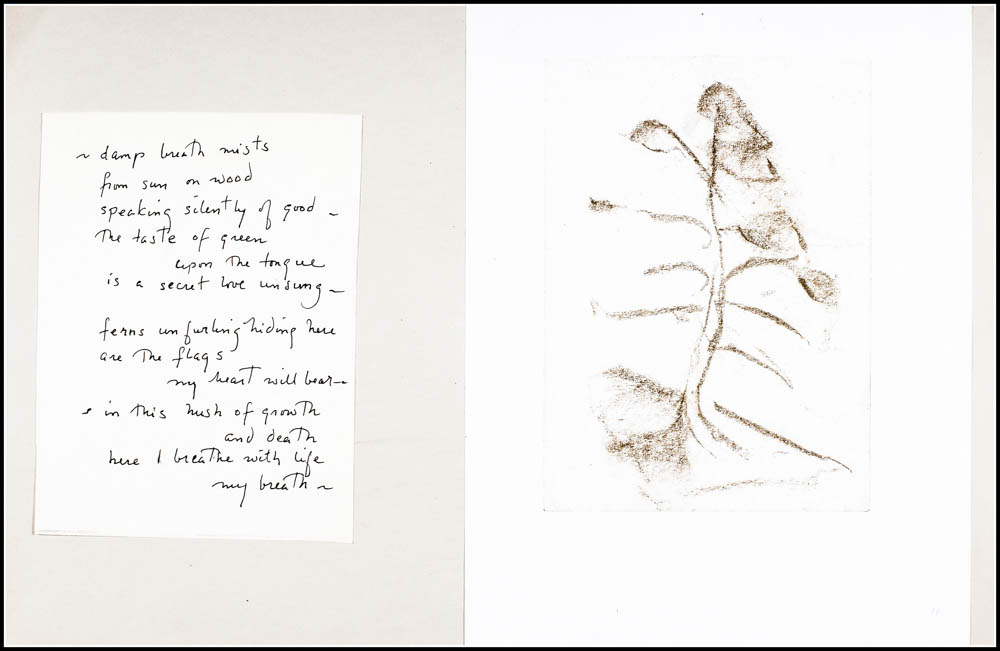 ~ damp breath mists
from sun on wood
speaking silently of good ~
The taste of green
upon The tongue
is a secret love unsung ~
ferns unfurling hiding here
are The flags
my heart will bear ~
~ in this hush of growth
and death
here I breathe with life
my breath ~